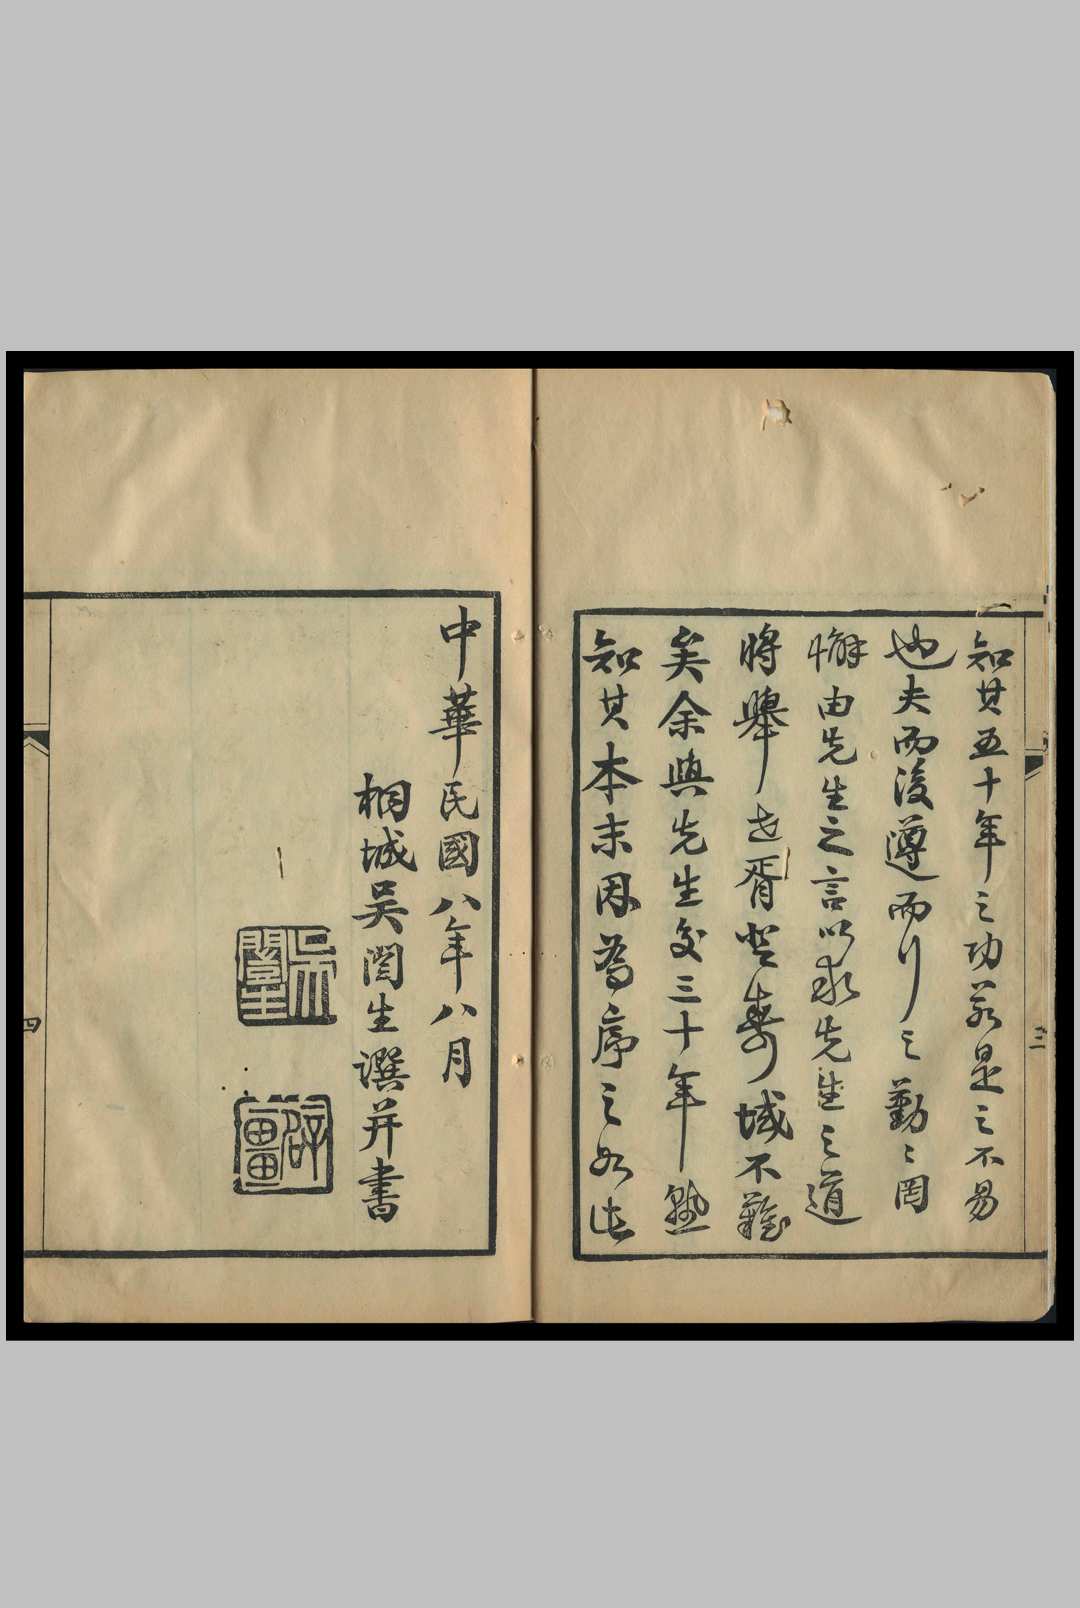 知其五十年之功若是之不易
也夫而後遵而行之勤勤罔
懈由先生之言以求先生之道
將舉世胥登壽域不難
矣余與先生交三十年熟
知其本末因為序之如此
三
中華民國八年八月
桐城吳闓生譔并書
吳闓生
辟畺
四